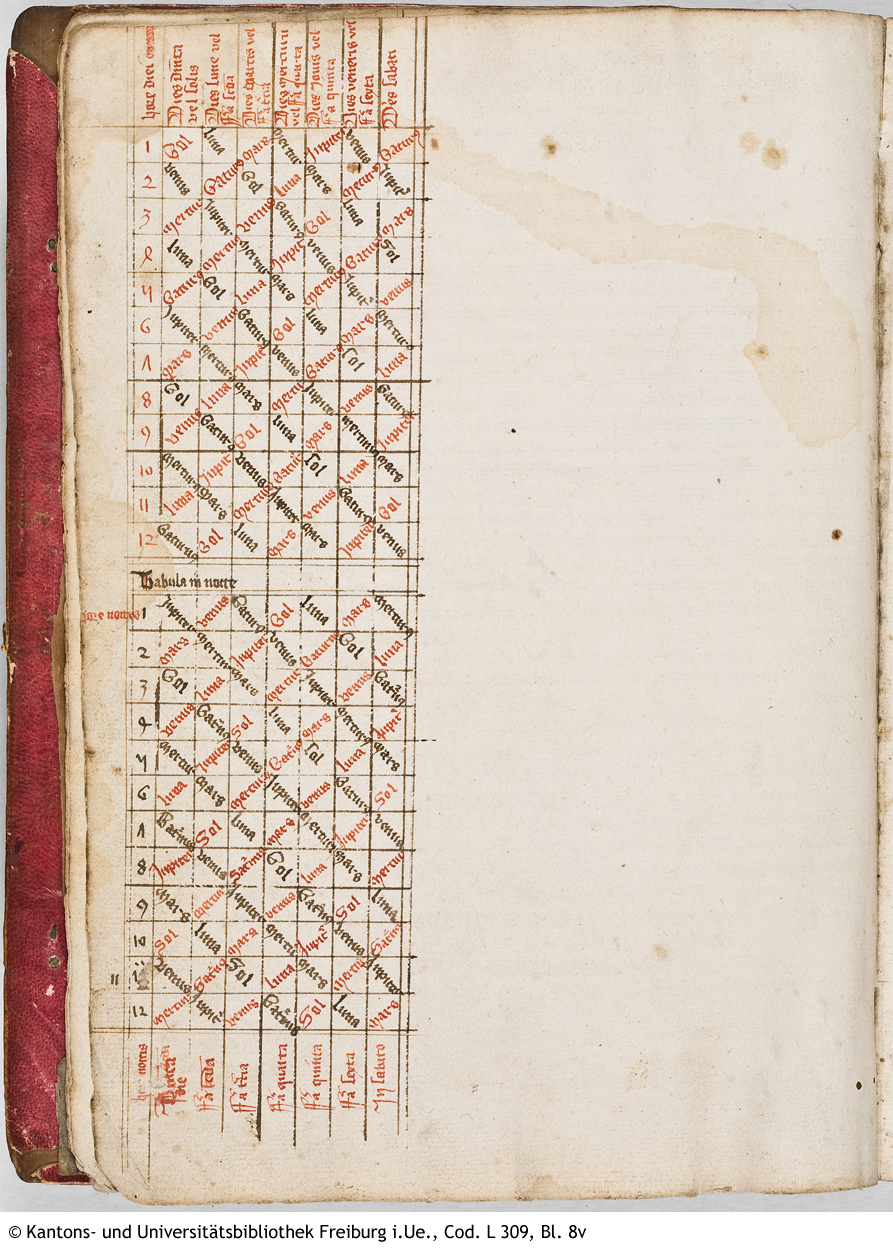 hore diei
Dies Dnica vel solis
Dies lune vel fa scda
Dies Martis vel fa tcia
Dies mercurii vel fa quarta
Dies Jovis vel fa quinta
Dies veneris vel fa sexta
Dies sabati
1 Sol luna mars mercuri Jupiter venus Saturnus
2 venus Saturnus Sol luna mars mercurius Jupiter
3 mercurius Jupiter venus Saturnus Sol luna mars
4 luna mercius mercuri Jupit venus Saturnus Sol
5 Saturnus Sol luna mars mercurius Jupiter venus
6 Jupiter venus Saturnus Sol luna mars mercurius
7 mars mercurius Jupiter venus Saturnus Sol luna
8 Sol luna mars mercuri Jupiter venus Saturnus
9 venus Saturnus Sol luna mars mercurius Jupiter
10 mercurius Jupit venus Saturn Sol luna mars
11 luna mars mercurius Jupiter venus Saturnus Sol
12 Saturnus Sol luna mars mars Jupiter venus
Tabula in nocte
hore noctis
1 Jupiter venus Saturnus Sol luna mars mercurius
2 mars mercurius Jupiter venus Saturnus Sol luna
3 Sol luna mars mercuri Jupiter venus Saturnus
4 venus Saturnus Sol luna mars mercurius Jupiter
5 mercuri Jupiter venus Saturnus Sol luna mars
6 luna mars mercurius Jupiter venus Saturnus Sol
7 Saturnus Sol luna mars mercurius Jupiter venus
8 Jupiter venus Saturnus Sol luna mars mercuri
9 mars mercuri Jupiter venus Saturnus Sol luna
10 Sol luna mars mercuri Jupiter venus Saturnus
11 venus Saturnus Sol luna mars mercurius Jupiter
12 mercuri Jupiter venus Saturnus Sol luna mars
hore noctis
Dnica die
fa scda
fa tcia
fa quarta
fa quinta
fa sexta
In sabato
© Kantons- und Universitätsbibliothek Freiburg i.Ue., Cod. L 309, Bl. 8v